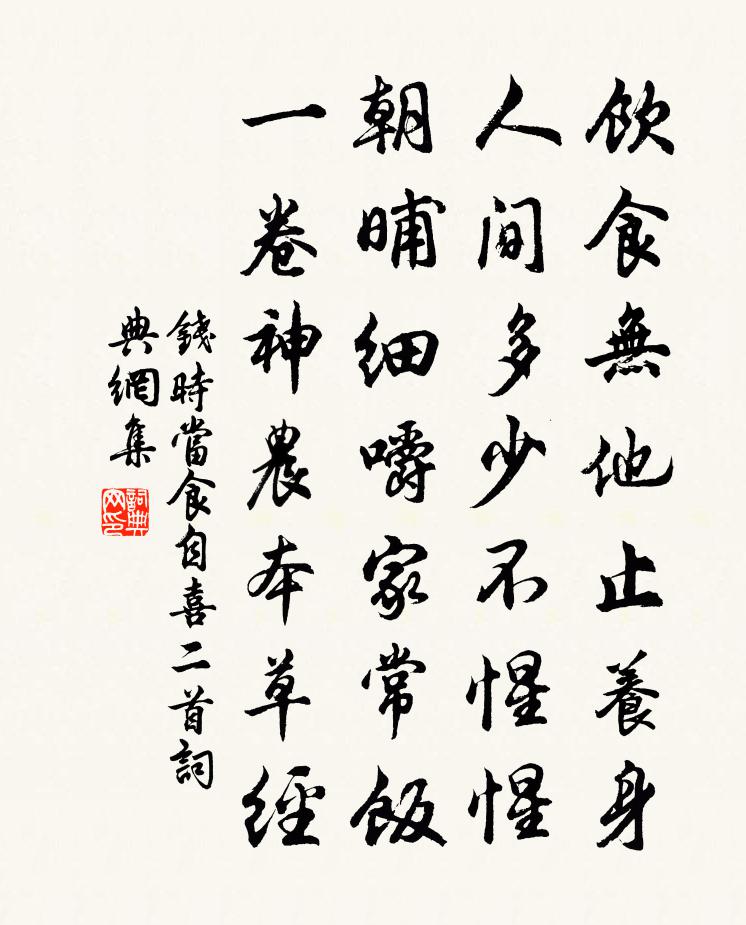 飲食無他止養身
人间多少不惺惺
朝晡細嚼家常飯
一卷神農本草經
錢時當食自喜二首詞
典網集
詞典网印